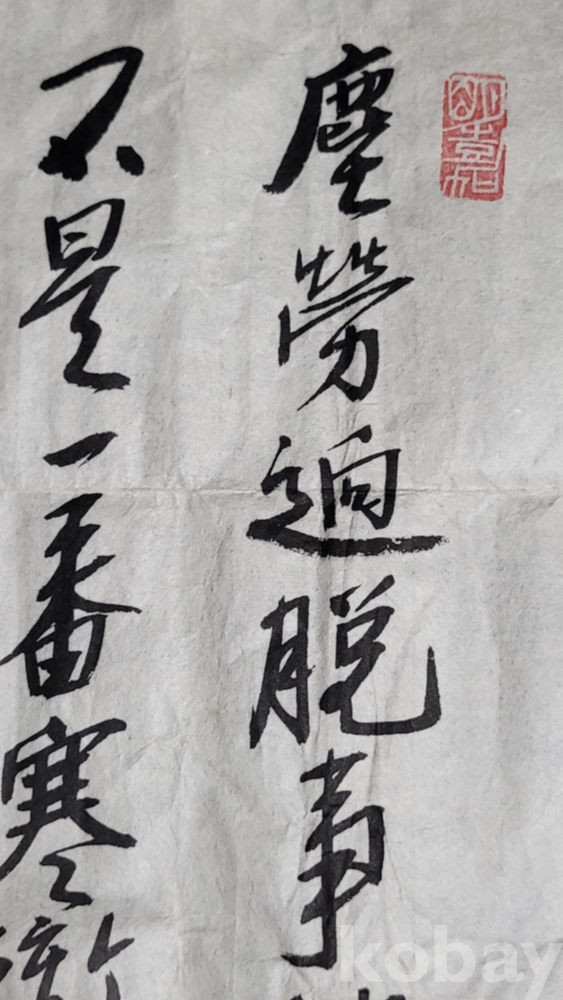 塵勞逈脫事
不是一番寒
kobay